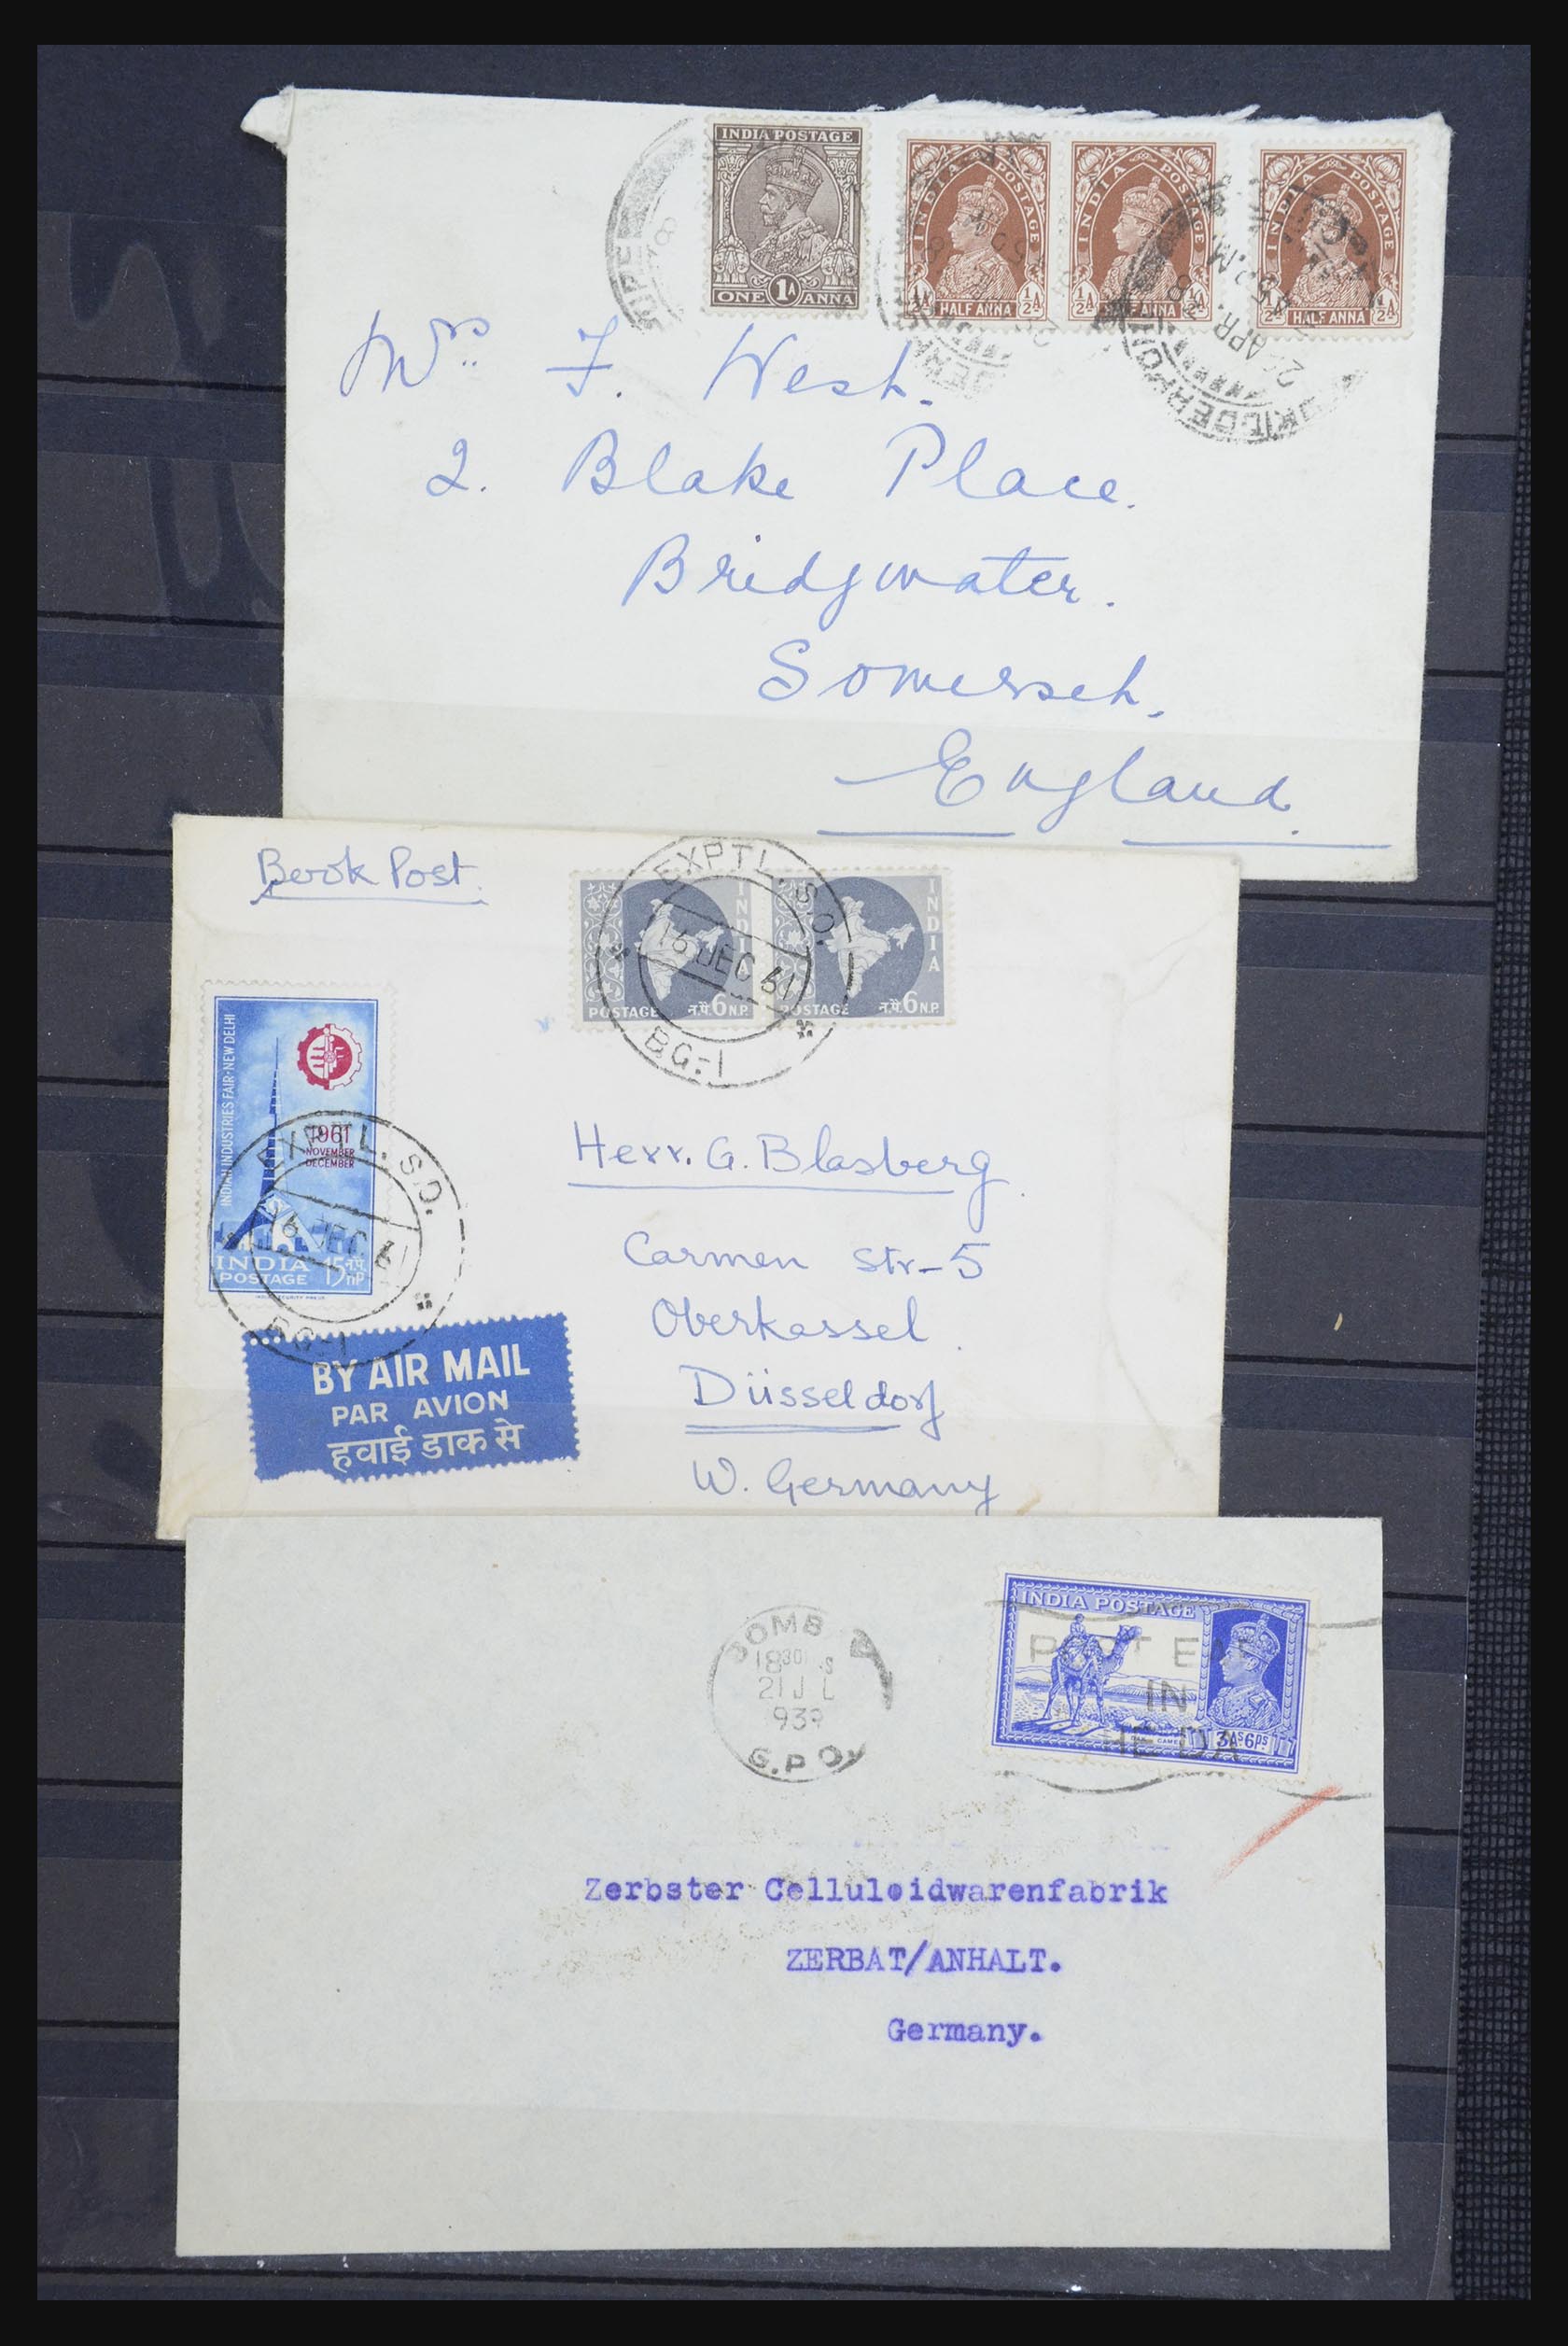 INDIA POSTAGE
ONE 1A ANNA
INDIA POSTAGE
½A HALF ANNA ½A
INDIA POSTAGE
½A HALF ANNA ½A
INDIA POSTAGE
½A HALF ANNA ½A
KIDDERPORE
APR.
Mrs. F. West.
2. Blake Place.
Bridgwater.
Somerset.
England.
Book Post.
INDIA
POSTAGE न.पै.6 N.P.
INDIA
POSTAGE न.पै.6 N.P.
EXPTL. S.O.
16 DEC 61
BG-1
INDIAN INDUSTRIES FAIR-NEW DELHI
1961
NOVEMBER
DECEMBER
INDIA 15 न.पै.
POSTAGE nP
EXPTL. S.O.
16 DEC 61
BG-1
BY AIR MAIL
PAR AVION
हवाई डाक से
Herr. G. Blasberg
Carmen Str-5
Oberkassel
Düsseldorf
W. Germany
INDIA POSTAGE
CAMEL
3As6ps
BOMB
18 30
21 J L
939
G.P.O.
IN
Zerbster Celluloidwarenfabrik
ZERBAT/ANHALT.
Germany.